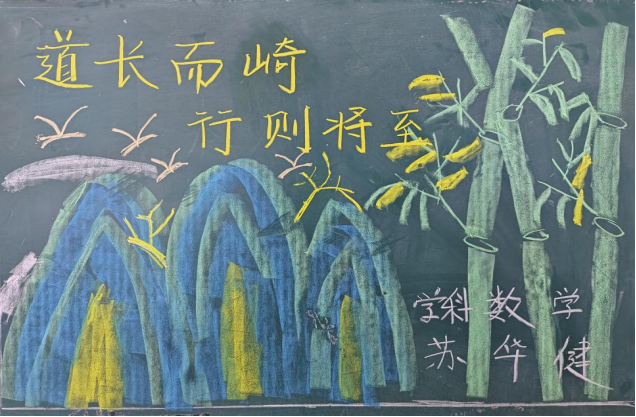 道长而崎
行则将至
学科数学
苏华健